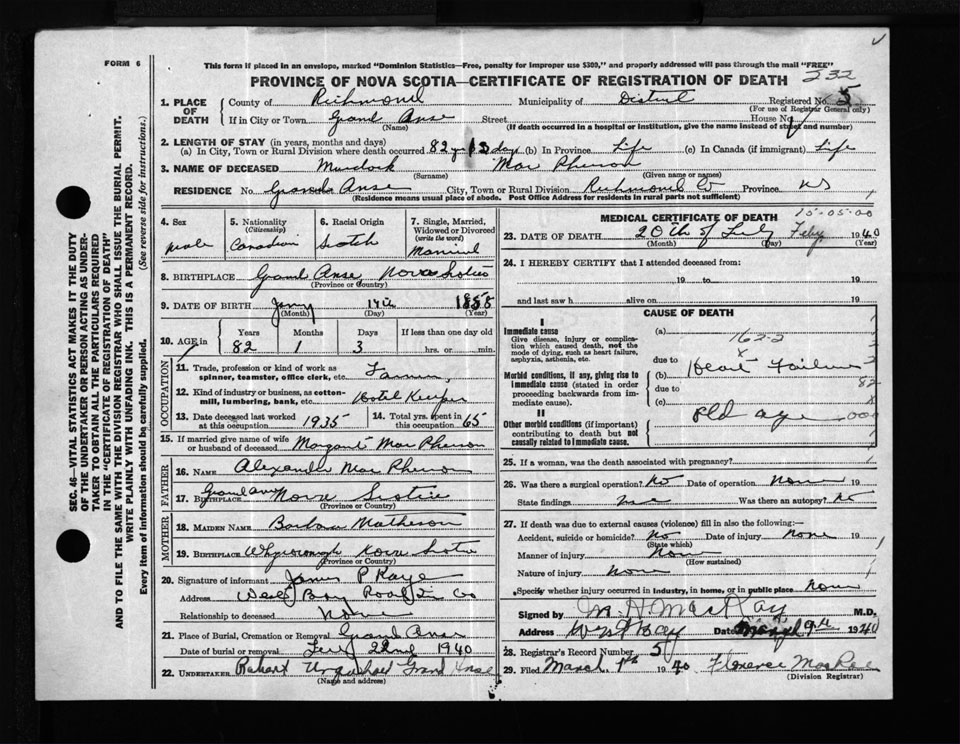 FORM 6
This form if placed in an envelope, marked "Dominion Statistics—Free, penalty for improper use $300," and properly addressed will pass through the mail "FREE"
PROVINCE OF NOVA SCOTIA—CERTIFICATE OF REGISTRATION OF DEATH
232
1. PLACE OF DEATH County of Richmond Municipality of District Registered No. 5
(For use of Registrar General only)
If in City or Town Grand Anse Street House No.
(Name) (If death occurred in a hospital or institution, give the name instead of street and number)
2. LENGTH OF STAY (in years, months and days)
(a) In City, Town or Rural Division where death occurred 82 (b) In Province Life (c) In Canada (if immigrant) Life
3. NAME OF DECEASED Murdock Mac Pherson
(Surname) (Given name or names)
RESIDENCE No. Grand Anse City, Town or Rural Division Richmond Co Province NS
(Residence means usual place of abode. Post Office Address for residents in rural parts not sufficient)
4. Sex
male
5. Nationality (Citizenship)
Canadian
6. Racial Origin
Scotch
7. Single, Married, Widowed or Divorced (write the word)
Married
8. BIRTHPLACE Grand Anse Nova Scotia
(Province or Country)
9. DATE OF BIRTH 14th 1858
(Month) (Day) (Year)
10. AGE in Years Months Days If less than one day old
82 1 3 hrs. or min.
OCCUPATION
11. Trade, profession or kind of work as spinner, teamster, office clerk, etc. Farmer
12. Kind of industry or business, as cotton-mill, lumbering, bank, etc. Hotel Keeper
13. Date deceased last worked at this occupation 1935
14. Total yrs. spent in this occupation 65
15. If married give name of wife or husband of deceased Margaret Mac Pherson
FATHER
16. NAME Alexander Mac Pherson
17. BIRTHPLACE Grand Anse Nova Scotia
(Province or Country)
MOTHER
18. MAIDEN NAME Barbara Matheson
19. BIRTHPLACE Whycocomagh Nova Scotia
(Province or Country)
20. Signature of informant James P
Address West Bay Road
Relationship to deceased None
21. Place of Burial, Cremation or Removal Grand Anse
Date of burial or removal 22nd 1940
22. UNDERTAKER Robert Urquhart Grand Anse
(Name and address)
MEDICAL CERTIFICATE OF DEATH
15-05-00
23. DATE OF DEATH 20th of Feby 1940
(Month) (Day) (Year)
24. I HEREBY CERTIFY that I attended deceased from:
19 to 19
and last saw h alive on 19
CAUSE OF DEATH
I
Immediate cause
Give disease, injury or complication which caused death, not the mode of dying, such as heart failure, asphyxia, asthenia, etc.
(a)
162-2
due to
Morbid conditions, if any, giving rise to immediate cause (stated in order proceeding backwards from immediate cause).
(b) Heart Failure
due to
82
(c)
II
Other morbid conditions (if important) contributing to death but not causally related to immediate cause.
old age
25. If a woman, was the death associated with pregnancy?
26. Was there a surgical operation? No Date of operation None 19
State findings Was there an autopsy? No
27. If death was due to external causes (violence) fill in also the following:—
Accident, suicide or homicide? No Date of injury None 19
(State which)
Manner of injury None
(How sustained)
Nature of injury None
Specify whether injury occurred in industry, in home, or in public place None
Signed by M H MacKay M.D.
Address West Bay Date March 9th 1940
28. Registrar's Record Number 5
29. Filed March 1940 Florence
(Division Registrar)
SEC. 46—VITAL STATISTICS ACT MAKES IT THE DUTY
OF THE UNDERTAKER OR PERSON ACTING AS UNDERTAKER TO OBTAIN ALL THE PARTICULARS REQUIRED
IN THE "CERTIFICATE OF REGISTRATION OF DEATH"
AND TO FILE THE SAME WITH THE DIVISION REGISTRAR WHO SHALL ISSUE THE BURIAL PERMIT.
WRITE PLAINLY WITH UNFADING INK. THIS IS A PERMANENT RECORD.
Every item of Information should be carefully supplied. (See reverse side for instructions.)